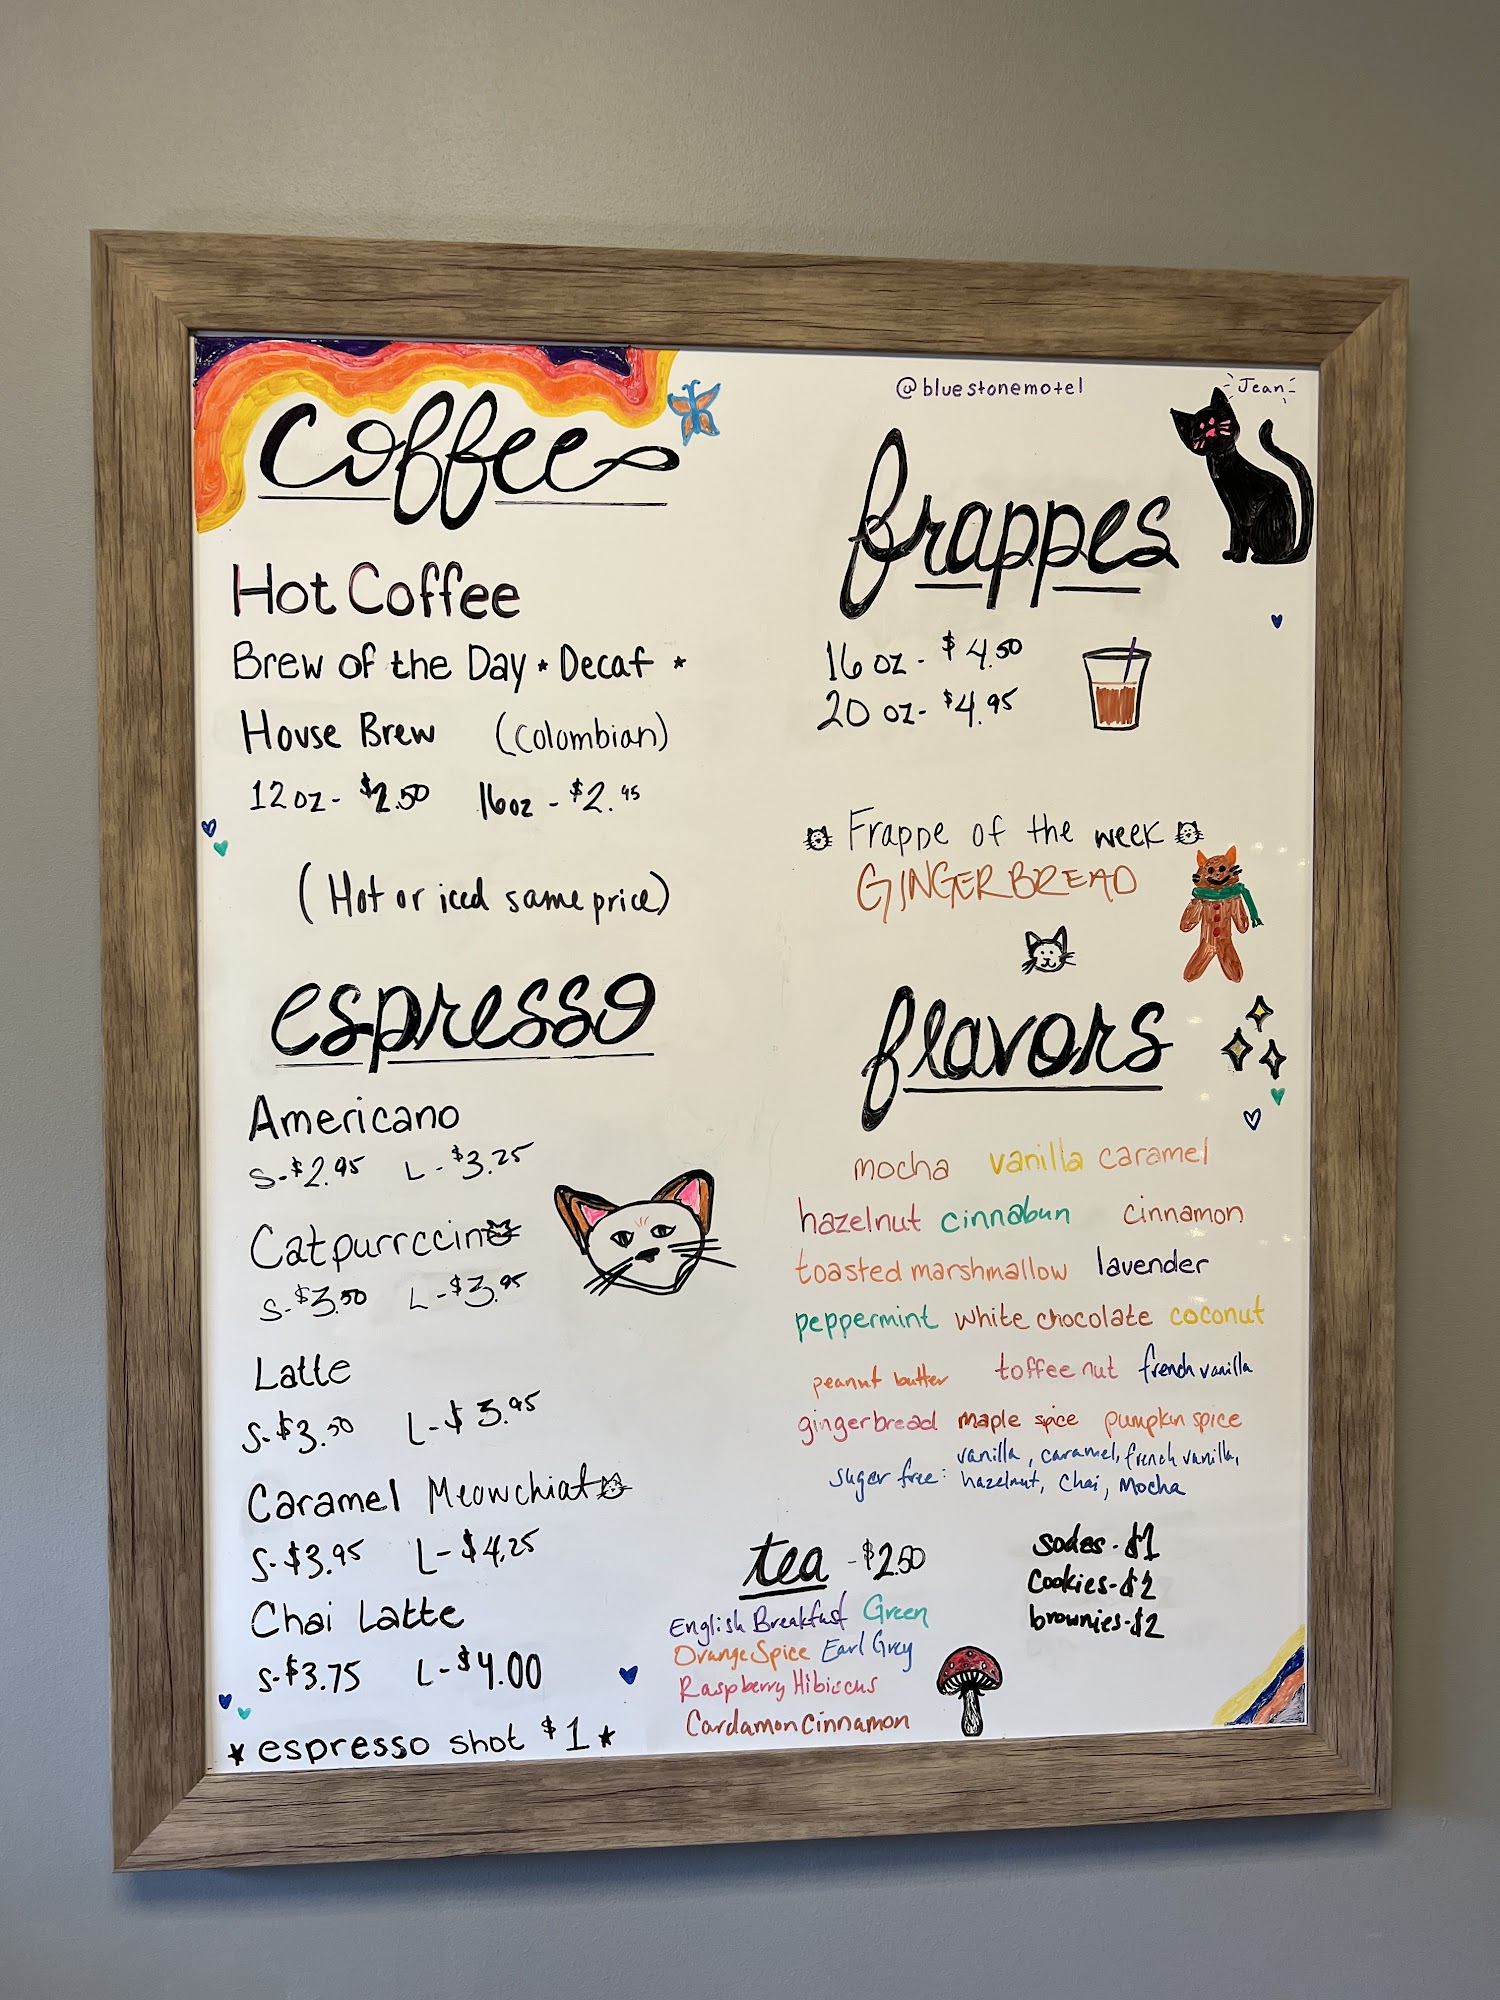 Coffee
Hot Coffee
Brew of the Day * Decaf *
House Brew (Colombian)
12 oz - $2.50 16 oz - $2.95
(Hot or iced same price)
espresso
Americano
S-$2.95 L-$3.25
Catpurrccino
S-$3.50 L-$3.95
Latte
S-$3.50 L-$3.95
Caramel Meowchiato
S-$3.95 L-$4.25
Chai Latte
S-$3.75 L-$4.00
* espresso shot $1 *
@bluestonemotel
Jean
frappes
16 oz - $4.50
20 oz - $4.95
Frappe of the week
GINGERBREAD
flavors
mocha vanilla caramel
hazelnut cinnabun cinnamon
toasted marshmallow lavender
peppermint white chocolate coconut
peanut butter toffee nut french vanilla
gingerbread maple spice pumpkin spice
sugar free: vanilla, caramel, french vanilla,
hazelnut, Chai, Mocha
tea - $2.50
English Breakfast Green
Orange Spice Earl Grey
Raspberry Hibiscus
Cardamon Cinnamon
sodas - $1
Cookies - $2
brownies - $2